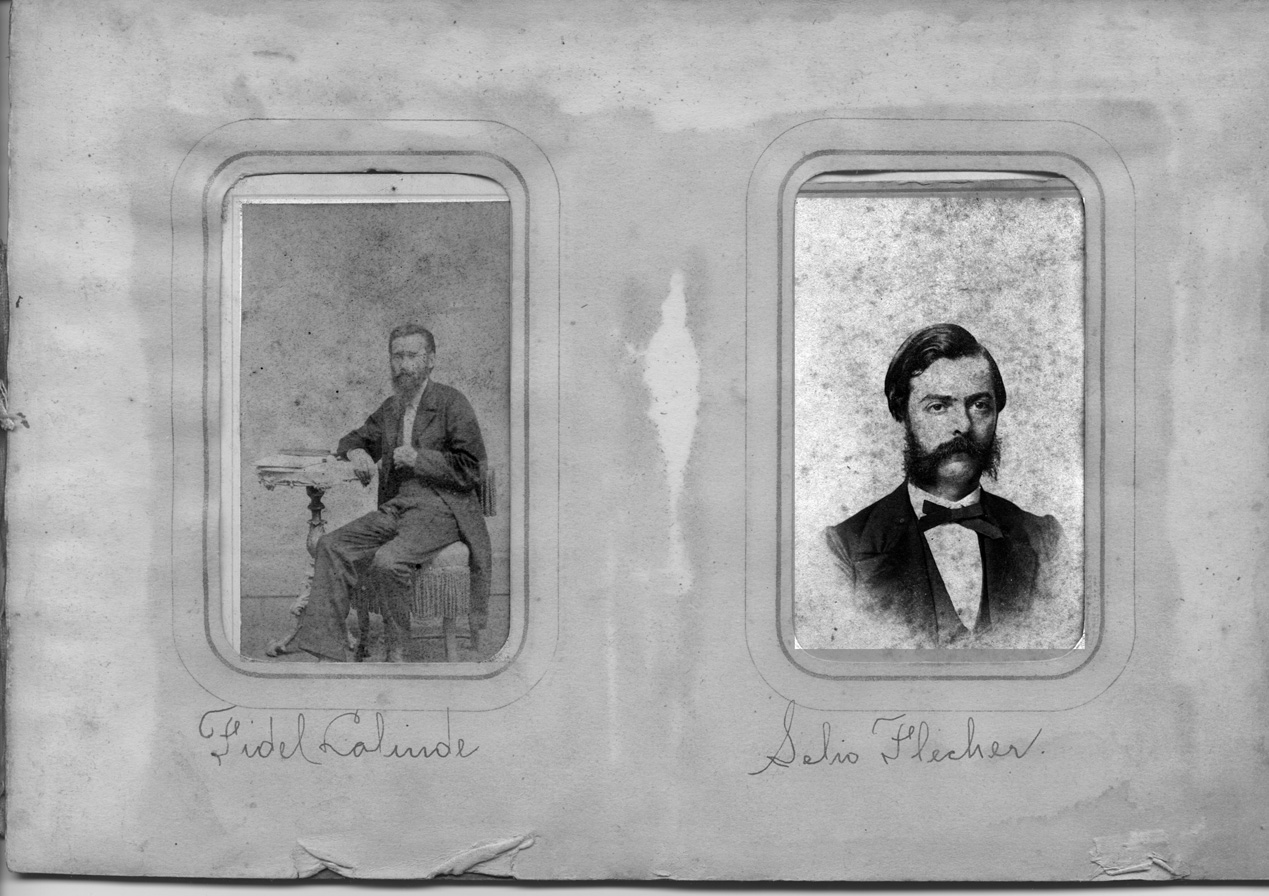 Fidel Lalinde
Selio Flecher.